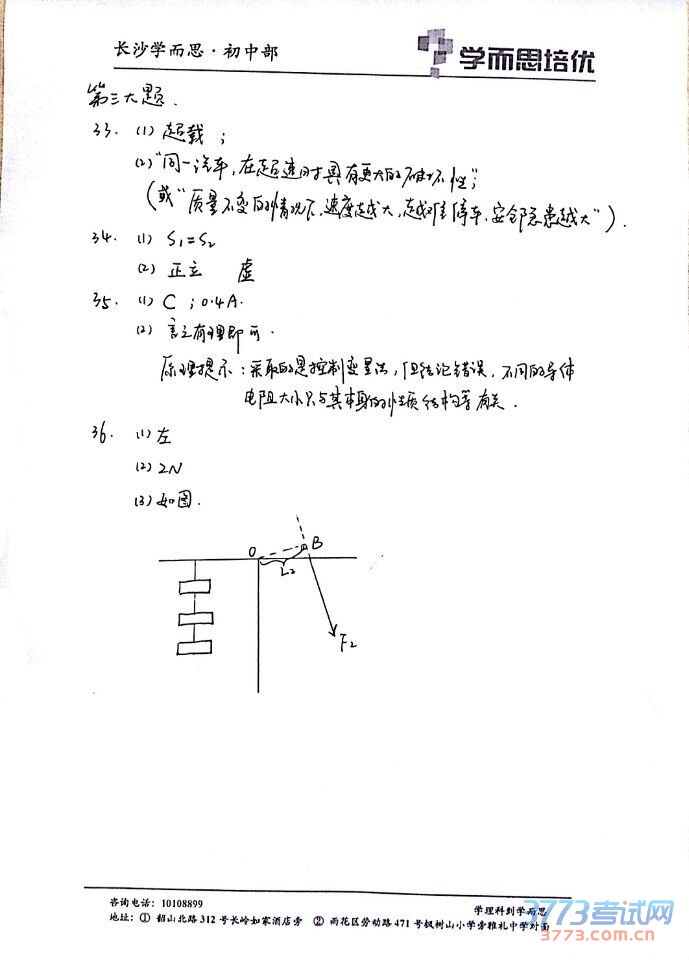 长沙学而思·初中部
学而思培优
第三大题.
33. (1) 超载;
(2)"同一汽车,在超速时具有更大的破坏性";
(或"质量不变的情况下,速度越大,越难停车,安全隐患越大").
34. (1) S₁=S₂
(2) 正立 虚
35. (1) C ; 0.4A.
(2) 言之有理即可.
原理提示:采取的是控制变量法,但结论错误,不同的导体
电阻大小只与其本身的性质结构等有关.
36. (1) 左
(2) 2N
(3) 如图.
O B
L₂
F₂
咨询电话:10108899
学理科到学而思
地址:① 韶山北路312号长岭如家酒店旁 ② 雨花区劳动路471号枫树山小学旁雅礼中学对面
3773考试网
3773.com.cn